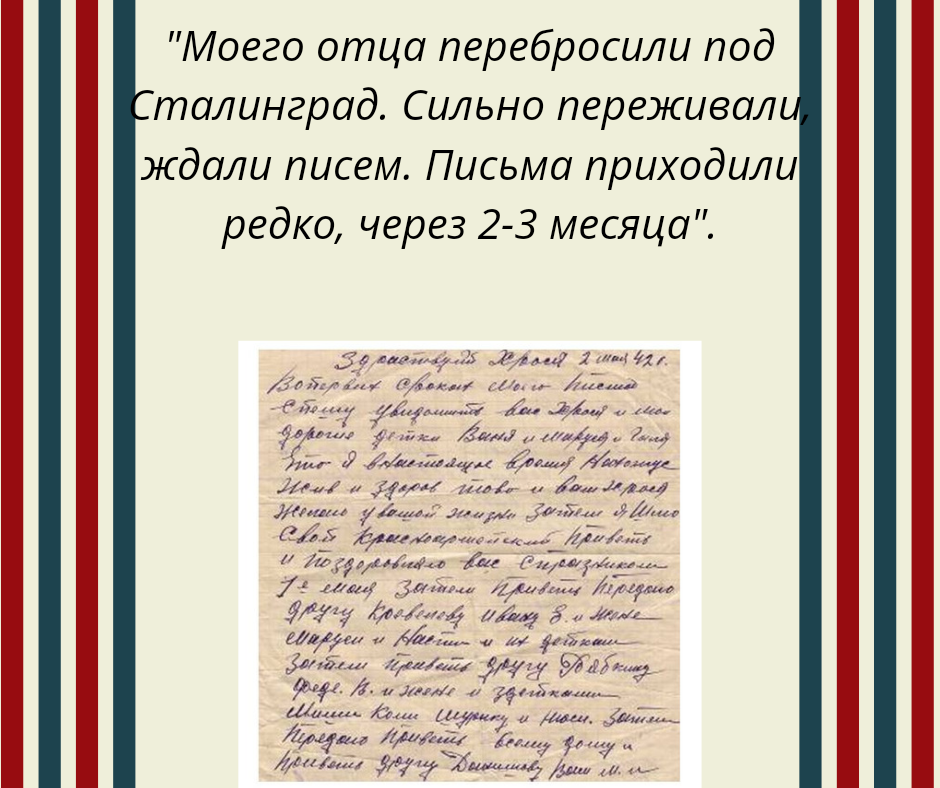 "Моего отца перебросили под
Сталинград. Сильно переживали,
ждали писем. Письма приходили
редко, через 2-3 месяца".
Здраствуй Хрося 2 мая 42 г.
Вопервых строках моего писма
Спешу уведомить вас Хрося и мои
дорогие детки Ваня и Маруся и
Что Я внастоящее время Нахожус
Жив и здоров тово и вам Хрося
Желаю увашой жизни Затем я Шлю
Свой Красноармейский Приветь
и Поздоровляю вас Спраздником
1е мая Затем Приветь Передаю
другу Ивану Е. и Жене
Маруси и Насти и их деткам
Затем приветь другу Бабкину
феде. В. и жене и здетками
Миши Коли Шурику и Нюси. Затем
Передаю Приветь всему дому и
приветь другу Данилову Ване М. и